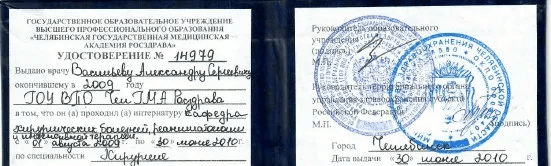 ГОСУДАРСТВЕННОЕ ОБРАЗОВАТЕЛЬНОЕ УЧРЕЖДЕНИЕ
ВЫСШЕГО ПРОФЕССИОНАЛЬНОГО ОБРАЗОВАНИЯ
«ЧЕЛЯБИНСКАЯ ГОСУДАРСТВЕННАЯ МЕДИЦИНСКАЯ
АКАДЕМИЯ РОСЗДРАВА»
УДОСТОВЕРЕНИЕ № 14979
Выдано врачу Васильеву Александру Сергеевичу
окончившему в 2009 году
ГОУ ВПО ЧелГМА Росздрава
в том, что он (а) проходил (а) интернатуру Кафедра
хирургических болезней, реаниматологии
и интенсивной терапии
с «01» августа 2009 г. по «30» июня 2010 г.
по специальности Хирургия
Руководитель образовательного
учреждения
(подпись)
М.П.
Руководитель территориального органа
управления здравоохранения субъекта
Российской Федерации
(подпись)
М.П.
Город Челябинск
Дата выдачи «30» июня 2010 г.
ЗДРАВООХРАНЕНИЯ ЧЕЛЯБИНСКОЙ